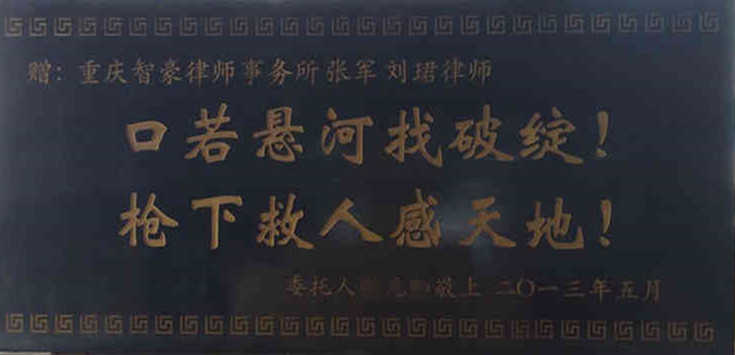 赠：重庆智豪律师事务所张军 刘珺律师
口若悬河找破绽！
枪下救人感天地！
委托人 敬上 二〇一三年五月